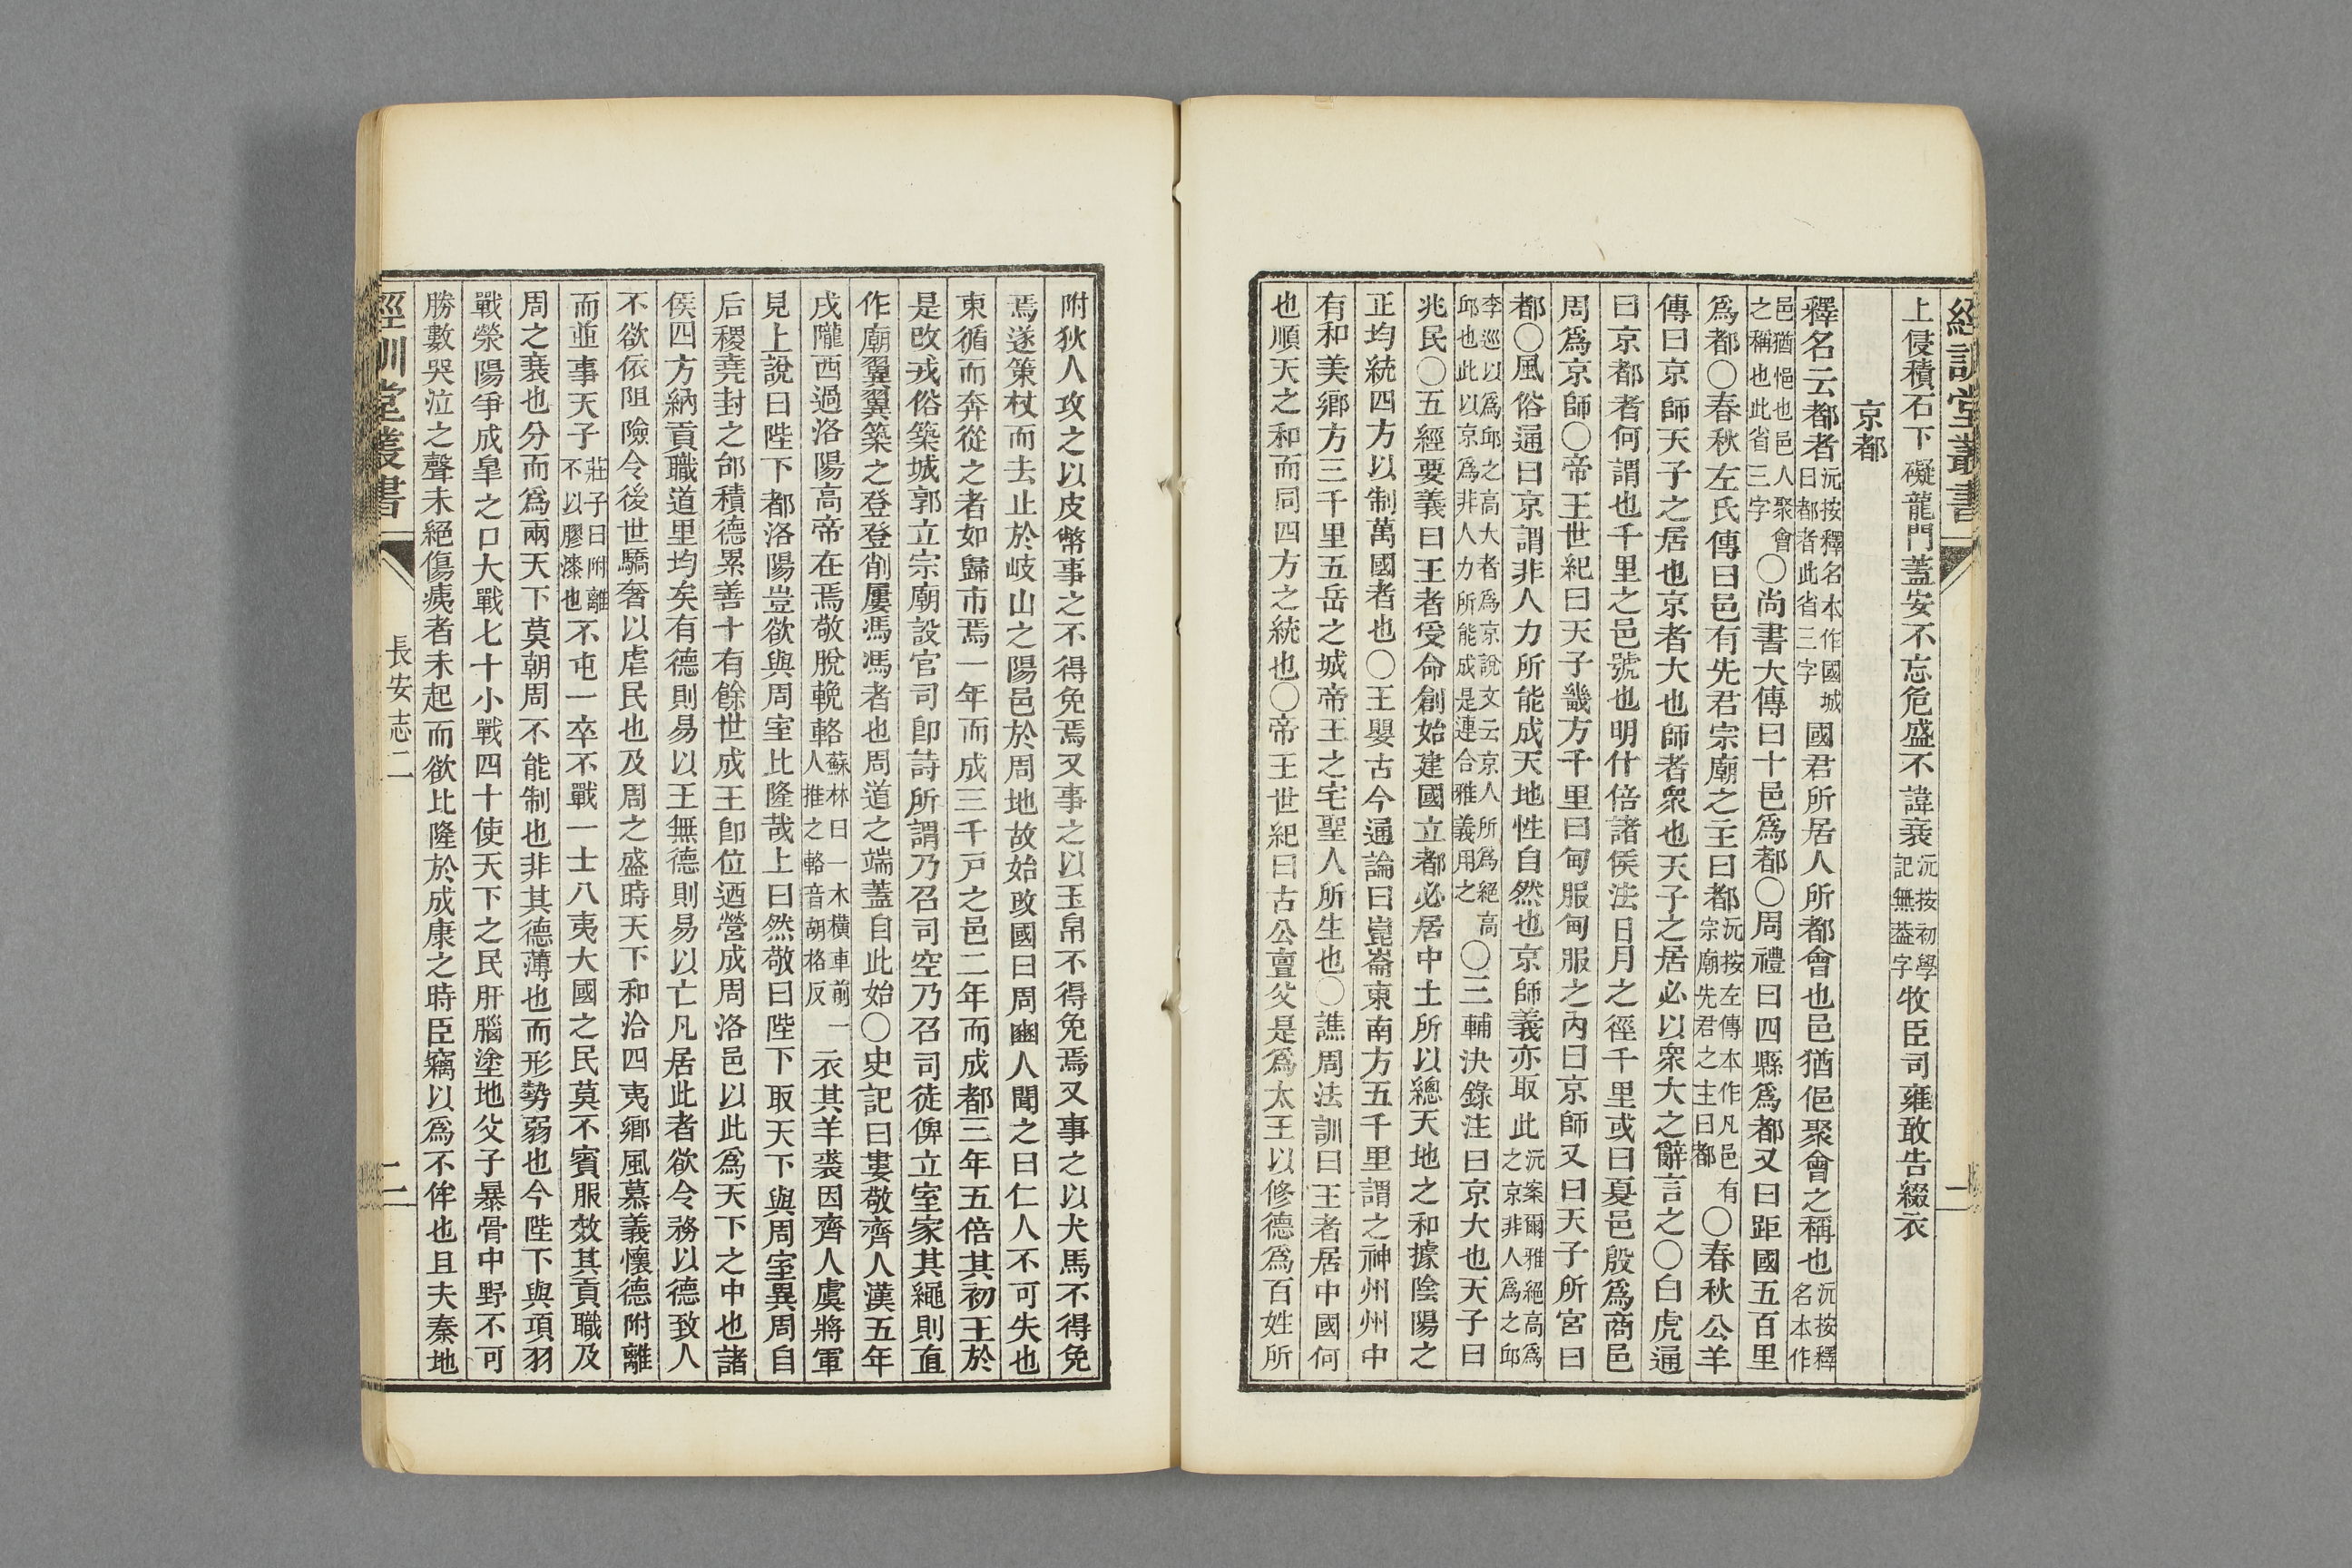 經訓堂叢書
上侵積石下礙龍門蓋安不忘危盛不諱衰沅按初學記無葢字牧臣司雍敢告綴衣
京都
釋名云都者沅按釋名本作國城曰都者此省三字國君所居人所都會也邑猶俋聚會之稱也沅按釋名本作
邑猶悒也邑人聚會之稱也此省三字〇尚書大傳曰十邑爲都〇周禮曰四縣爲都又曰距國五百里
爲都〇春秋左氏傳曰邑有先君宗廟之主曰都沅按左傳本作凡邑有宗廟先君之主曰都〇春秋公羊
傳曰京師天子之居也京者大也師者衆也天子之居必以衆大之辭言之〇白虎通
曰京都者何謂也千里之邑號也明什倍諸侯法日月之徑千里或曰夏邑殷爲商邑
周爲京師〇帝王世紀曰天子畿方千里曰甸服甸服之內曰京師又曰天子所宮曰
都〇風俗通曰京謂非人力所能成天地性自然也京師義亦取此沅案爾雅絕高爲之京非人爲之邱
李巡以爲邱之高大者爲京說文云京人所爲絕高邱也此以京爲非人力所能成是連合雅義用之〇三輔決錄注曰京大也天子曰
兆民〇五經要義曰王者受命創始建國立都必居中土所以總天地之和據陰陽之
正均統四方以制萬國者也〇王嬰古今通論曰崑崙東南方五千里謂之神州州中
有和美鄉方三千里五岳之城帝王之宅聖人所生也〇譙周法訓曰王者居中國何
也順天之和而同四方之統也〇帝王世紀曰古公亶父是爲太王以修德爲百姓所
二
附狄人攻之以皮幣事之不得免焉又事之以玉帛不得免焉又事之以犬馬不得免
焉遂策杖而去止於岐山之陽邑於周地故始改國曰周豳人聞之曰仁人不可失也
東循而奔從之者如歸市焉一年而成三千戶之邑二年而成都三年五倍其初王於
是改戎俗築城郭立宗廟設官司卽詩所謂乃召司空乃召司徒俾立室家其繩則直
作廟翼翼築之登登削屢馮馮者也周道之端蓋自此始〇史記曰婁敬齊人漢五年
戍隴西過洛陽高帝在焉敬脫輓輅蘇林曰一木橫車前一人推之輅音胡格反衣其羊裘因齊人虞將軍
見上說曰陛下都洛陽豈欲與周室比隆哉上曰然敬曰陛下取天下與周室異周自
后稷堯封之邰積德累善十有餘世成王卽位迺營成周洛邑以此爲天下之中也諸
侯四方納貢職道里均矣有德則易以王無德則易以亡凡居此者欲令務以德致人
不欲依阻險令後世驕奢以虐民也及周之盛時天下和洽四夷鄉風慕義懷德附離
而並事天子莊子曰附離不以膠漆也不屯一卒不戰一士八夷大國之民莫不賓服效其貢職及
周之衰也分而爲兩天下莫朝周不能制也非其德薄也而形勢弱也今陛下與項羽
戰滎陽爭成皐之口大戰七十小戰四十使天下之民肝腦塗地父子暴骨中野不可
勝數哭泣之聲未絕傷痍者未起而欲比隆於成康之時臣竊以爲不侔也且夫秦地
經訓堂叢書
長安志二
二